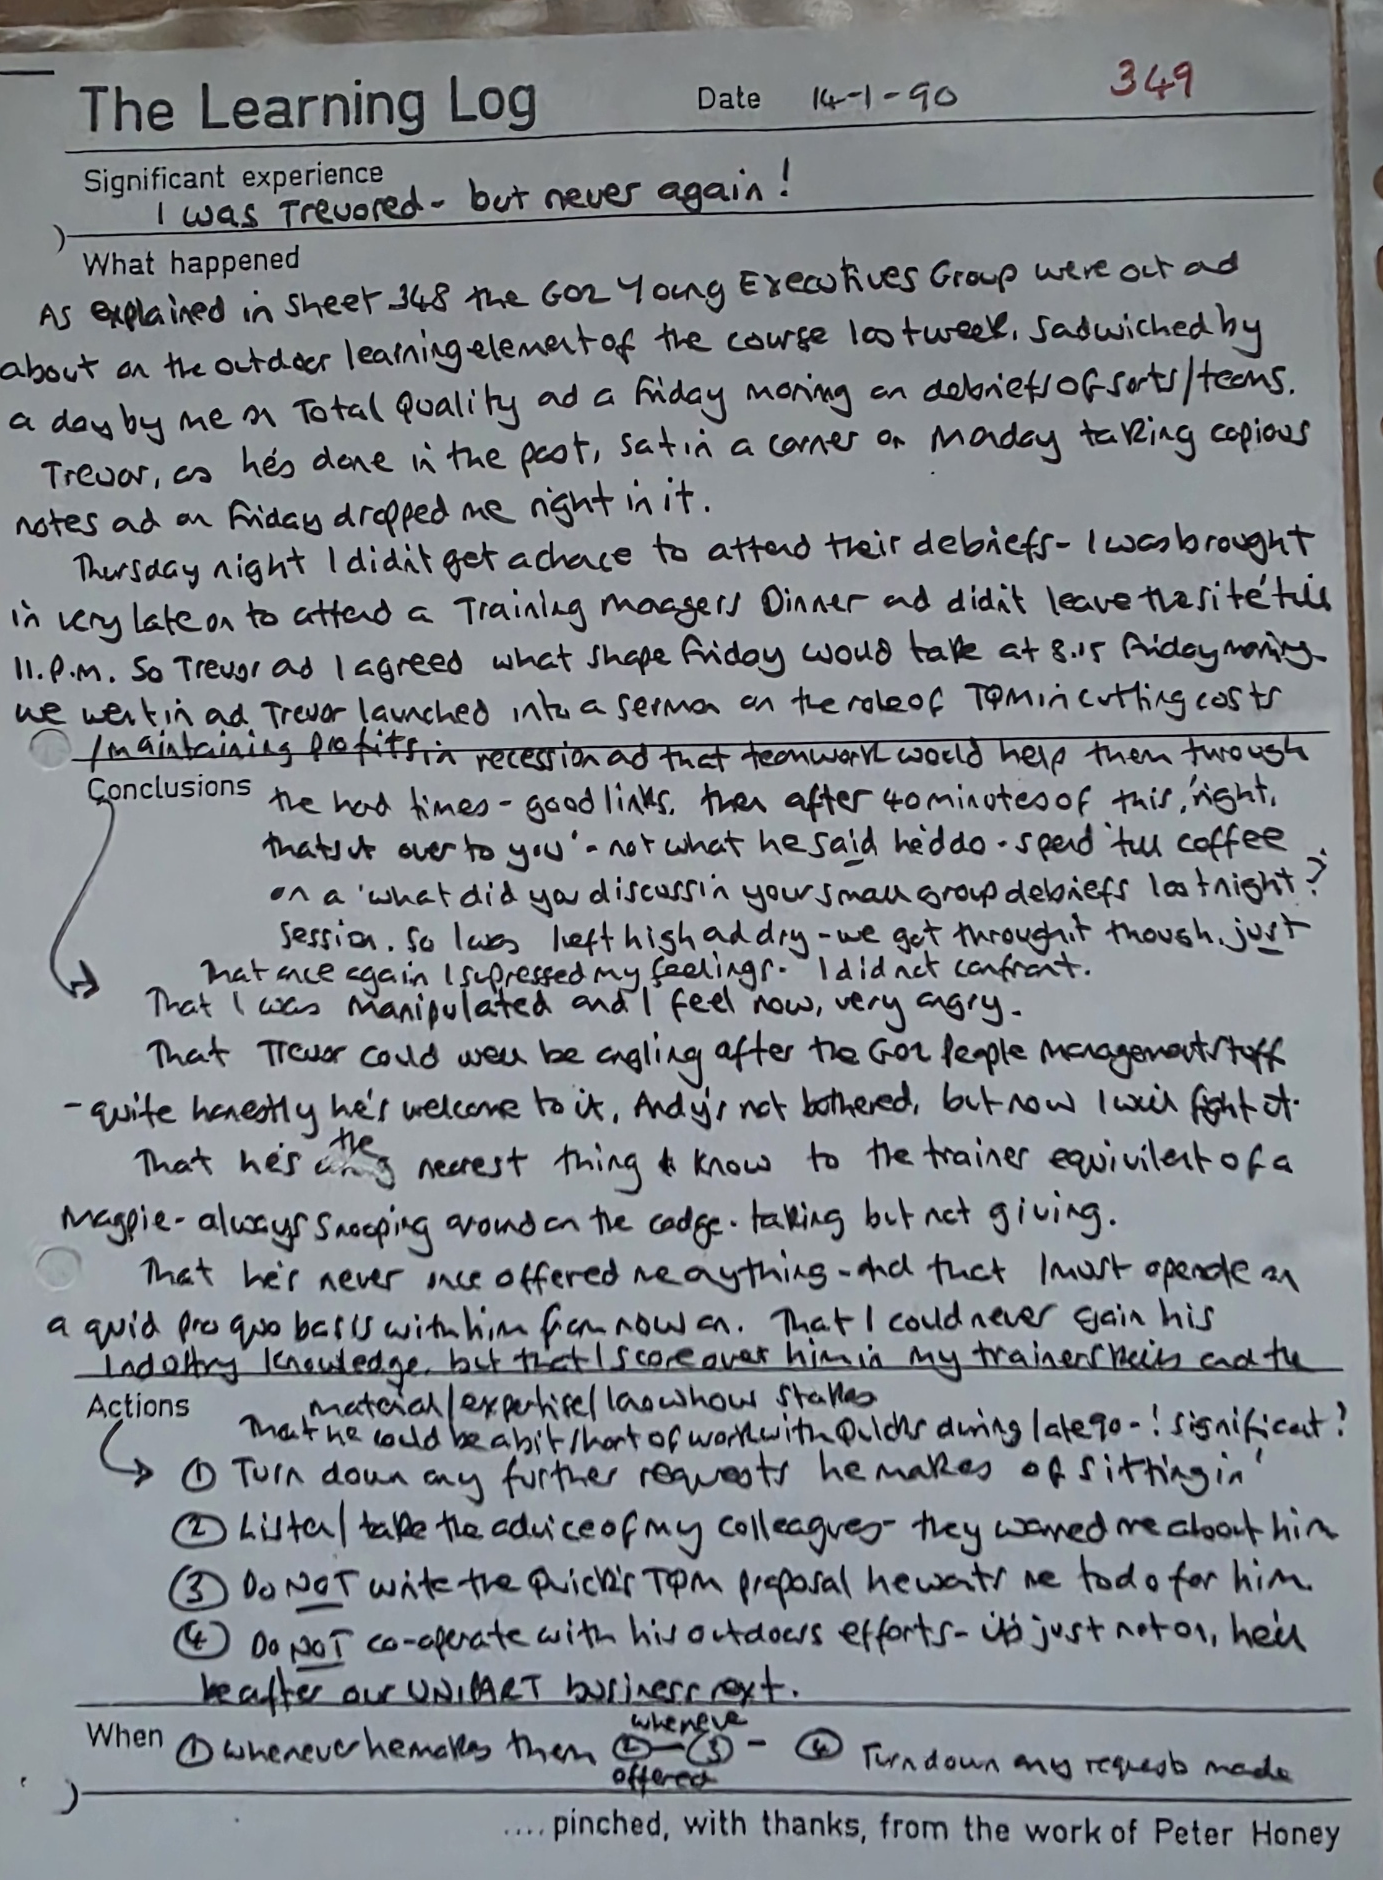 The Learning Log Date 14-1-90 349
Significant experience
I was Trevored - but never again!
What happened
As explained in sheet 348 the G02 Young Executives Group were out ad
about on the outdoor learning element of the course last week, sadwiched by
a day by me on Total Quality ad a Friday moring on debriefs of sorts/teams.
Trevor, as he's done in the past, sat in a corner on Monday taking copious
notes ad on Friday dropped me right in it.
Thursday night I didn't get a chace to attend their debriefs - I was brought
in very late on to attend a Training Maagers Dinner ad didn't leave the site 'till
11.P.M. So Trevor ad I agreed what shape Friday would take at 8.15 Friday moring.
we went in ad Trevor launched into a sermon on the role of TQM in cutting costs
/maintaining profits in recession ad that teamwork would help them through
Conclusions the hard times - good links. then after 40 minutes of this, 'right,
thats it over to you' - not what he said he'd do - spend 'till coffee
on a 'what did you discuss in your small group debriefs last night?'
session. So I was left high ad dry - we got through it though, just
That once again I supressed my feelings. I did not confront.
That I was manipulated and I feel now, very angry.
That Trevor could well be angling after the G02 People Management stuff
- quite honestly he's welcome to it, Andy's not bothered, but now I will fight it.
That he's the nearest thing I know to the trainer equivilent of a
Magpie - always snooping around on the cadge. taking but not giving.
That he's never once offered me anything - and that I must operate on
a quid pro quo basis with him from now on. That I could never gain his
Industry knowledge, but that I score over him in my trainer skills and the
Actions material/expertise/knowhow stakes
That he could be a bit short of work with Quicks during late 90 - ! significant?
① Turn down any further requests he makes of 'sitting in'
② Listen/take the advice of my colleagues - they warned me about him
③ Do NOT write the Quick's TQM proposal he wants me to do for him.
④ Do NOT co-operate with his outdoors efforts - it's just not on, he'll
be after our UNIPART business next.
When ① whenever he makes them ② wheneve offered ③ - ④ Turn down any requests made
.... pinched, with thanks, from the work of Peter Honey